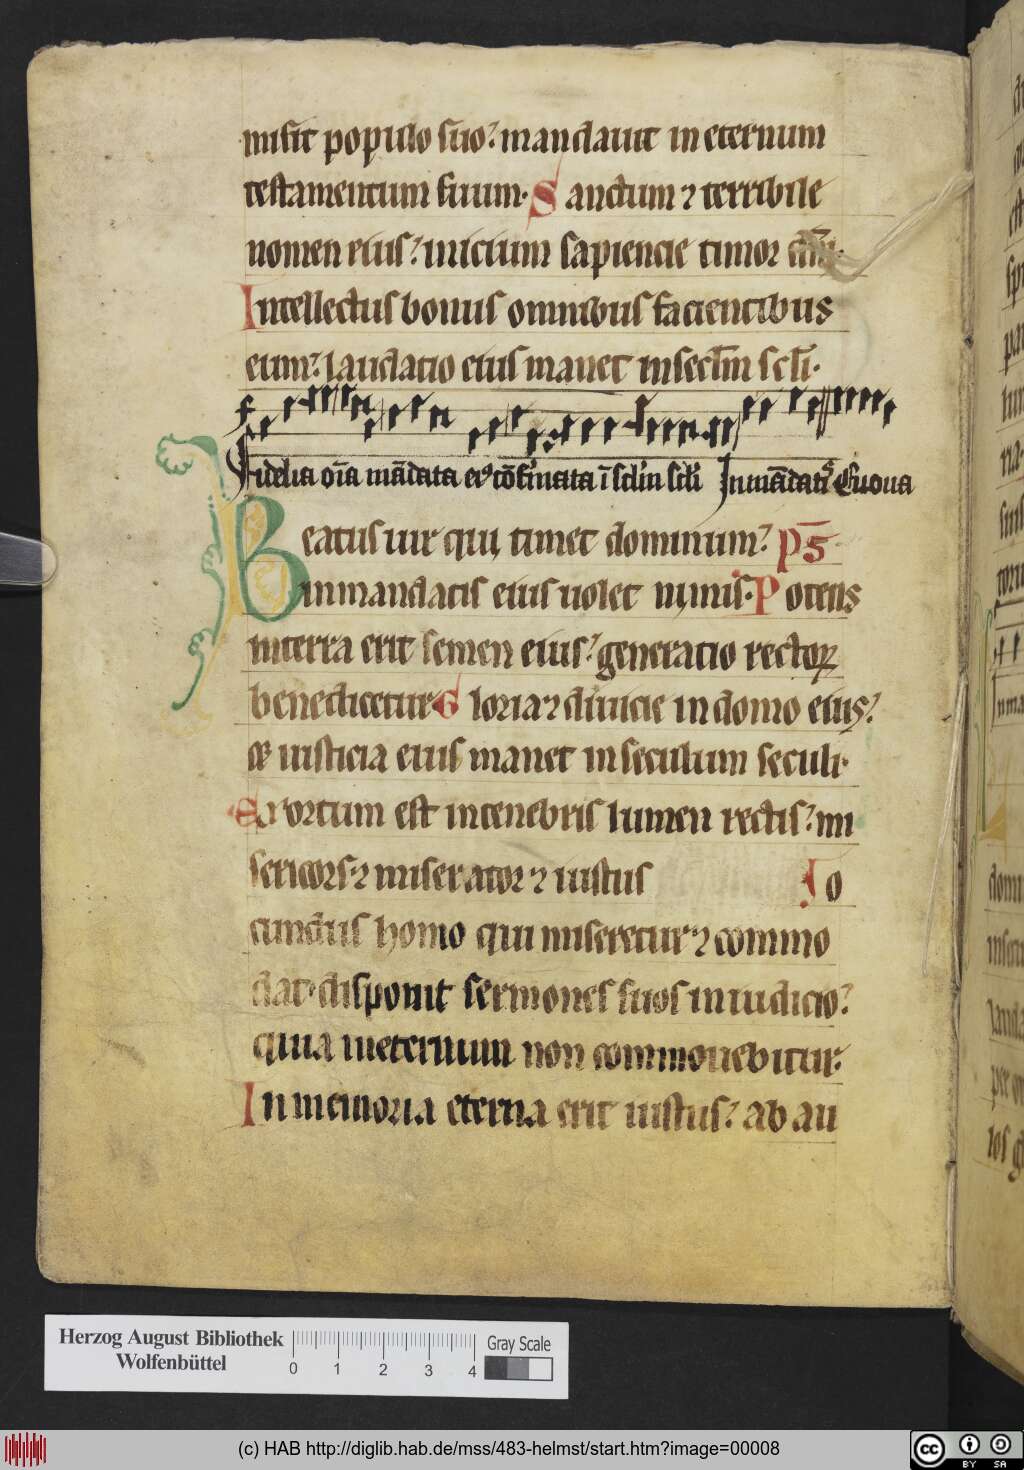 misit populo suo: mandauit in eternum
testamentum suum. Sanctum ⁊ terribile
nomen eius: inicium sapiencie timor dm̄i.
Intellectus bonus omnibus facientibus
eum: laudacio eius manet in secl̄m scl̄i.
Fidelia oīa mādata eꝰ cōfirmata ī scl̄m scl̄i In mādatꝭ Euoua
Beatus uir qui timet dominum: p̄s
in mandatis eius uolet nimis. Potens
in terra erit semen eius: generatio rectoꝝ
benedicetur Gloria ⁊ diuicie in domo eius:
⁊ iusticia eius manet in seculum seculi.
Exortum est in tenebris lumen rectis: mi
sericors ⁊ miserator ⁊ iustus Io
cundus homo qui miseretur ⁊ commo
dat. disponit sermones suos in iudicio:
quia in eternum non commouebitur.
In memoria eterna erit iustus: ab au
Herzog August Bibliothek
Wolfenbüttel
0 1 2 3 4
Gray Scale
(c) HAB http://diglib.hab.de/mss/483-helmst/start.htm?image=00008
cc BY SA